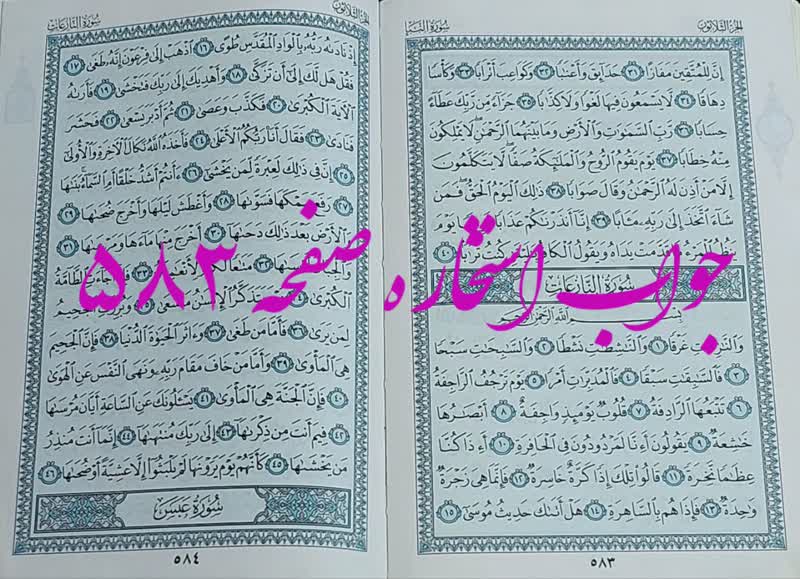 الجزء الثلاثون
سورة النبإ
إِنَّ لِلْمُتَّقِينَ مَفَازًا ٣١ حَدَائِقَ وَأَعْنَابًا ٣٢ وَكَوَاعِبَ أَتْرَابًا ٣٣ وَكَأْسًا
دِهَاقًا ٣٤ لَّا يَسْمَعُونَ فِيهَا لَغْوًا وَلَا كِذَّابًا ٣٥ جَزَاءً مِّن رَّبِّكَ عَطَاءً
حِسَابًا ٣٦ رَّبِّ السَّمَاوَاتِ وَالْأَرْضِ وَمَا بَيْنَهُمَا الرَّحْمَٰنِ لَا يَمْلِكُونَ
مِنْهُ خِطَابًا ٣٧ يَوْمَ يَقُومُ الرُّوحُ وَالْمَلَائِكَةُ صَفًّا لَّا يَتَكَلَّمُونَ
إِلَّا مَنْ أَذِنَ لَهُ الرَّحْمَٰنُ وَقَالَ صَوَابًا ٣٨ ذَٰلِكَ الْيَوْمُ الْحَقُّ فَمَن
شَاءَ اتَّخَذَ إِلَىٰ رَبِّهِ مَآبًا ٣٩ إِنَّا أَنذَرْنَاكُمْ عَذَابًا يَوْمَ
يَنظُرُ الْمَرْءُ قَدَّمَتْ يَدَاهُ وَيَقُولُ الْكَافِرُ كُنتُ تُرَابًا ٤٠
سُورَةُ النَّازِعَاتِ
بِسْمِ اللَّهِ الرَّحْمَٰنِ الرَّحِيمِ
وَالنَّازِعَاتِ غَرْقًا ١ وَالنَّاشِطَاتِ نَشْطًا ٢ وَالسَّابِحَاتِ سَبْحًا
٣ فَالسَّابِقَاتِ سَبْقًا ٤ فَالْمُدَبِّرَاتِ أَمْرًا ٥ يَوْمَ تَرْجُفُ الرَّاجِفَةُ
٦ تَتْبَعُهَا الرَّادِفَةُ ٧ قُلُوبٌ يَوْمَئِذٍ وَاجِفَةٌ ٨ أَبْصَارُهَا
خَاشِعَةٌ ٩ يَقُولُونَ أَءِنَّا لَمَرْدُودُونَ فِي الْحَافِرَةِ ١٠ أَءِذَا كُنَّا
عِظَامًا نَّخِرَةً ١١ قَالُوا تِلْكَ إِذًا كَرَّةٌ خَاسِرَةٌ ١٢ فَإِنَّمَا هِيَ زَجْرَةٌ
وَاحِدَةٌ ١٣ فَإِذَا هُم بِالسَّاهِرَةِ ١٤ هَلْ أَتَاكَ حَدِيثُ مُوسَىٰ ١٥
٥٨٣
الجزء الثلاثون
سورة النازعات
إِذْ نَادَاهُ رَبُّهُ بِالْوَادِ الْمُقَدَّسِ طُوًى ١٦ اذْهَبْ إِلَىٰ فِرْعَوْنَ إِنَّهُ طَغَىٰ ١٧
فَقُلْ هَل لَّكَ إِلَىٰ أَن تَزَكَّىٰ ١٨ وَأَهْدِيَكَ إِلَىٰ رَبِّكَ فَتَخْشَىٰ ١٩ فَأَرَاهُ
الْآيَةَ الْكُبْرَىٰ ٢٠ فَكَذَّبَ وَعَصَىٰ ٢١ ثُمَّ أَدْبَرَ يَسْعَىٰ ٢٢ فَحَشَرَ
فَنَادَىٰ ٢٣ فَقَالَ أَنَا رَبُّكُمُ الْأَعْلَىٰ ٢٤ فَأَخَذَهُ اللَّهُ نَكَالَ الْآخِرَةِ وَالْأُولَىٰ
٢٥ إِنَّ فِي ذَٰلِكَ لَعِبْرَةً لِّمَن يَخْشَىٰ ٢٦ ءَأَنتُمْ أَشَدُّ خَلْقًا أَمِ السَّمَاءُ بَنَاهَا
٢٧ رَفَعَ سَمْكَهَا فَسَوَّاهَا ٢٨ وَأَغْطَشَ لَيْلَهَا وَأَخْرَجَ ضُحَاهَا ٢٩
وَالْأَرْضَ بَعْدَ ذَٰلِكَ دَحَاهَا ٣٠ أَخْرَجَ مِنْهَا مَاءَهَا وَمَرْعَاهَا ٣١
وَالْجِبَالَ أَرْسَاهَا ٣٢ مَتَاعًا لَّكُمْ ٣٣ جَاءَتِ الطَّامَّةُ
الْكُبْرَىٰ يَتَذَكَّرُ الْإِنسَانُ مَا سَعَىٰ وَبُرِّزَتِ الْجَحِيمُ
لِمَن يَرَىٰ ٣٦ فَأَمَّا مَن طَغَىٰ ٣٧ وَآثَرَ الْحَيَاةَ الدُّنْيَا ٣٨ فَإِنَّ الْجَحِيمَ
هِيَ الْمَأْوَىٰ ٣٩ وَأَمَّا مَنْ خَافَ مَقَامَ رَبِّهِ وَنَهَى النَّفْسَ عَنِ الْهَوَىٰ
٤٠ فَإِنَّ الْجَنَّةَ هِيَ الْمَأْوَىٰ ٤١ يَسْأَلُونَكَ عَنِ السَّاعَةِ أَيَّانَ مُرْسَاهَا
٤٢ فِيمَ أَنتَ مِن ذِكْرَاهَا ٤٣ إِلَىٰ رَبِّكَ مُنتَهَاهَا ٤٤ إِنَّمَا أَنتَ مُنذِرُ
مَن يَخْشَاهَا ٤٥ كَأَنَّهُمْ يَوْمَ يَرَوْنَهَا لَمْ يَلْبَثُوا إِلَّا عَشِيَّةً أَوْ ضُحَاهَا ٤٦
سُورَةُ عَبَسَ
٥٨٤
جواب استخاره صفحه ۵۸۳